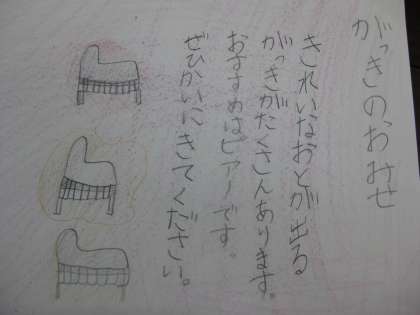 がっきのおみせ
きれいなおとが出る
がっきがたくさんあります。
おすすめはピアノです。
ぜひかいにきてください。